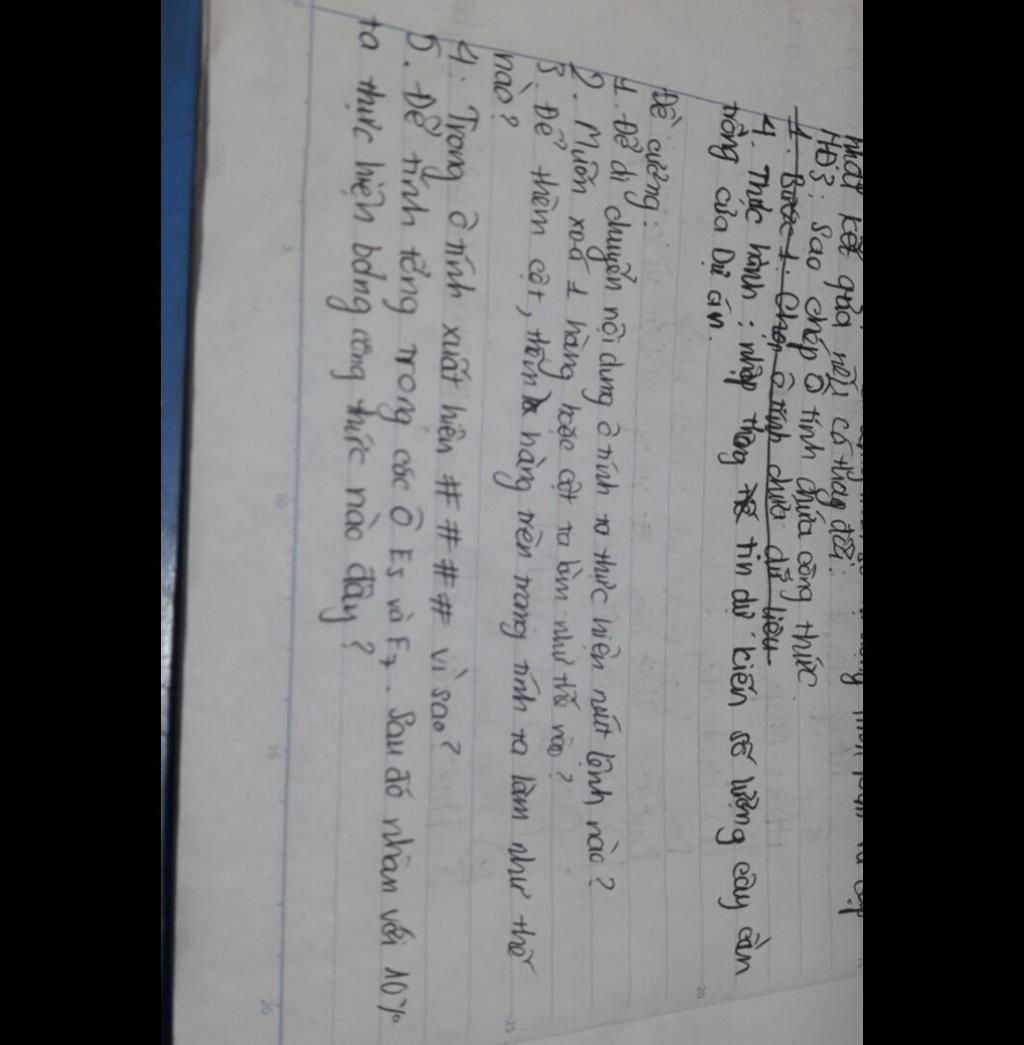 nhật kết quả nếu có thay đổi:
HĐ3: Sao chép ô tính chứa công thức.
1. Bước 1: Chọn ô tính chứa dữ liệu
4. Thực hành: nhập thông tin dự kiến số lượng cây cần
trồng của Dự án.
Đề cương:
1. Để di chuyển nội dung ô tính ta thực hiện nút lệnh nào?
2. Muốn xoá 1 hàng hoặc cột ta làm như thế nào?
3. Để thêm cột, thêm hàng trên trang tính ta làm như thế
nào?
4. Trong ô tính xuất hiện # # # # vì sao?
5. Để tính tổng trong các ô E5 và F7. Sau đó nhân với 10%
ta thực hiện bằng công thức nào đây?
5
10
15
20
20
25